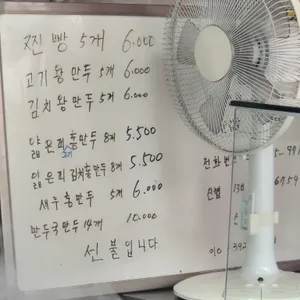 찐빵 5개 6.000
고기왕만두 5개 6.000
김치왕만두 5개 6.000
얇은피 통만두 8개 5.500
얇은피김치통만두 8개 5.500
새우통만두 5개 6.000
만두국만두 14개 10.000
선불입니다
전화번
신협 131
392